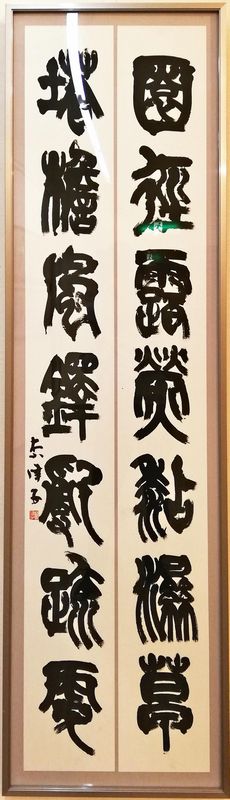 園徑露熒黏濕草
塔檐風鐸亂疏更